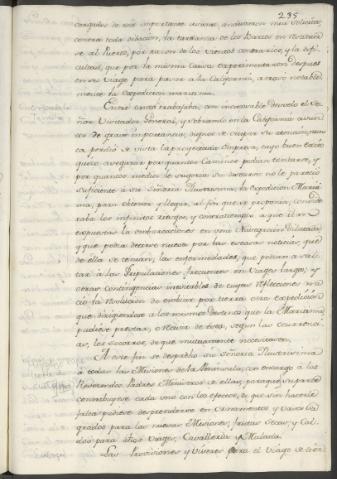 235
congoles de este importante asunto, anduvieron mui solicitos
contra toda dilacion, la tardanza de los Barcos en restituir
se al Puerto, por razon de los vientos contrarios, y la difi-
cultad, que por la misma causa experimentaron despues
en su viage para pasar a la California, atrasó notable
mente la Expedicion maritima.
Entre tanto trabajaba, con incansable desvelo el Se-
ñor Visitador General, y sobrando en la California asun-
tos de grave importancia, dignos de ocupar su atencion, nun-
ca perdió de vista la proyectada Empresa, cuyo buen exito
quiso asegurar por quantos Caminos podian tentarse, y
por quantos medios le sugeria su No le pareció
suficiente á su Señoria Ilustrisima, la expedicion Mariti-
ma, para obtener y llegar al fin que se proponia; conside-
raba los infinitos riesgos, y contratiempos a que iban
expuestas las embarcaciones en una Navegacion dilatada,
y que podia decirse nueva por las escasas noticias, que
de ella se tenian; las enfermedades, que podian asaltar
a las Tripulaciones frecuentes en viages largos, y
otras contingencias inevitables de cuyas reflexiones na-
ció la resolucion de embiar por tierra otra expedicion
que dirigiendose a los mismos destinos que la Maritima
pudiese prestar, ó recivir de ésta, segun las ocurrenci-
as, los socorros, de que mutuamente necesitasen.
A este fin se despachó su Señoria Ilustrisima
á todas las Misiones de la Peninsula, con encargo á los
Reverendos Padres Ministros de ellas, para que
contribuyese cada una con los efectos, de que sin hacerle
falta pudiese desprenderse en Ornamentos y Vasos Sa-
grados para las nuevas Misiones; frutas secas, y Cal-
dos para dicho viage, Cavalleria y Mulada.
Las Provisiones y Viveres para el Viage se con-